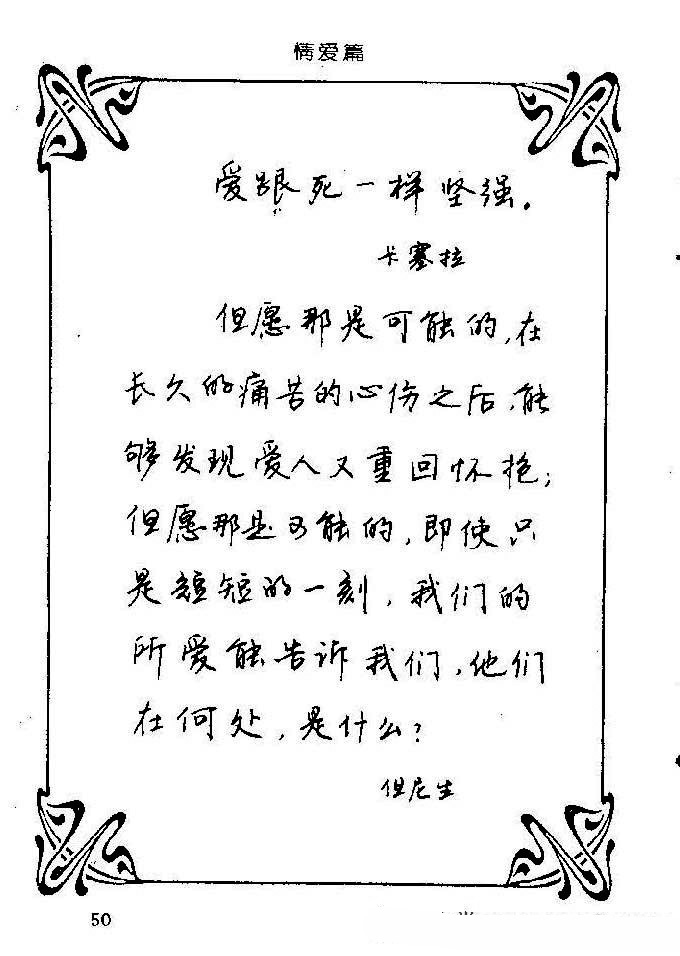 情爱篇
爱跟死一样坚强.
卡塞拉
但愿那是可能的,在
长久的痛苦的心伤之后,能
够发现爱人又重回怀抱;
但愿那是可能的,即使只
是短短的一刻,我们的
所爱能告诉我们,他们
在何处,是什么?
但尼生
50